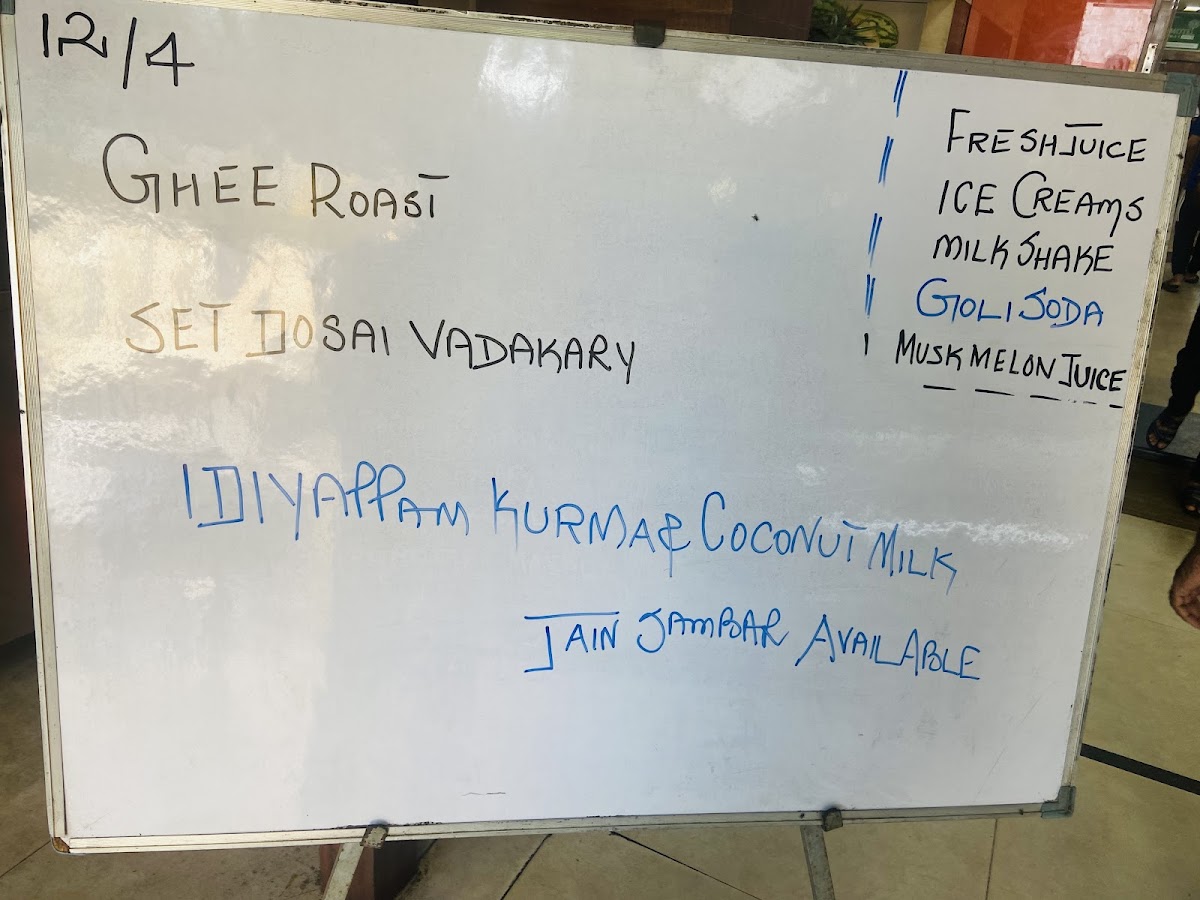 12/4
GHEE ROAST
SET DOSAI VADAKARY
IDIYAPPAM KURMA & COCONUT MILK
JAIN SAMBAR AVAILABLE
FRESH JUICE
ICE CREAMS
MILK SHAKE
GOLI SODA
MUSK MELON JUICE